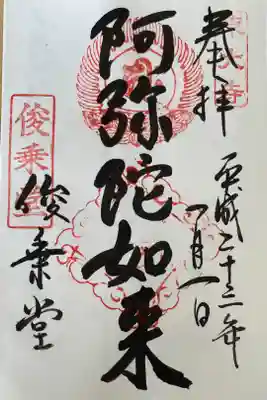 奉拝
平成二十三年
一月一日
阿弥陀如来
俊乗堂
俊乗堂
東大寺